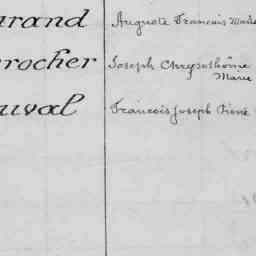 urand Auguste Francois Marie
rocher Joseph Chrysosthôme
Marie
uval Francois Joseph Réné